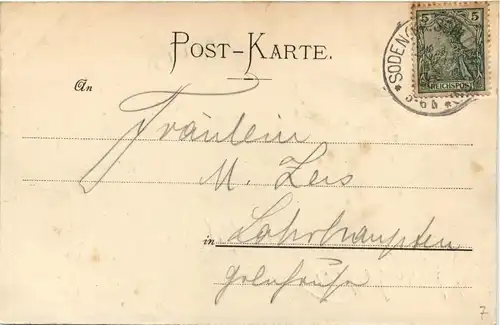 POST-KARTE.
5 5
REICHSPOST
*SODEN
5-6N
An
Fräulein
M. Zeis
in Lohrhaupten
Gelnhausen
7